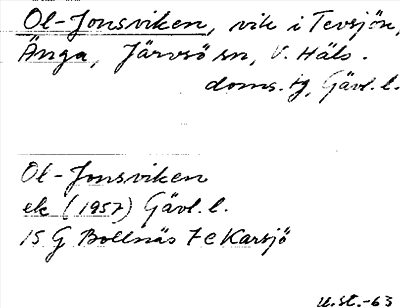 Ol-Jonsviken, vik i Tevsjön,
Änga, Järvsö sn, V. Häls.
doms. tg, Gävl. l.
Ol-Jonsviken
ek (1957) Gävl. l.
15 G Bollnäs 7 e Karsjö
U.St.-63